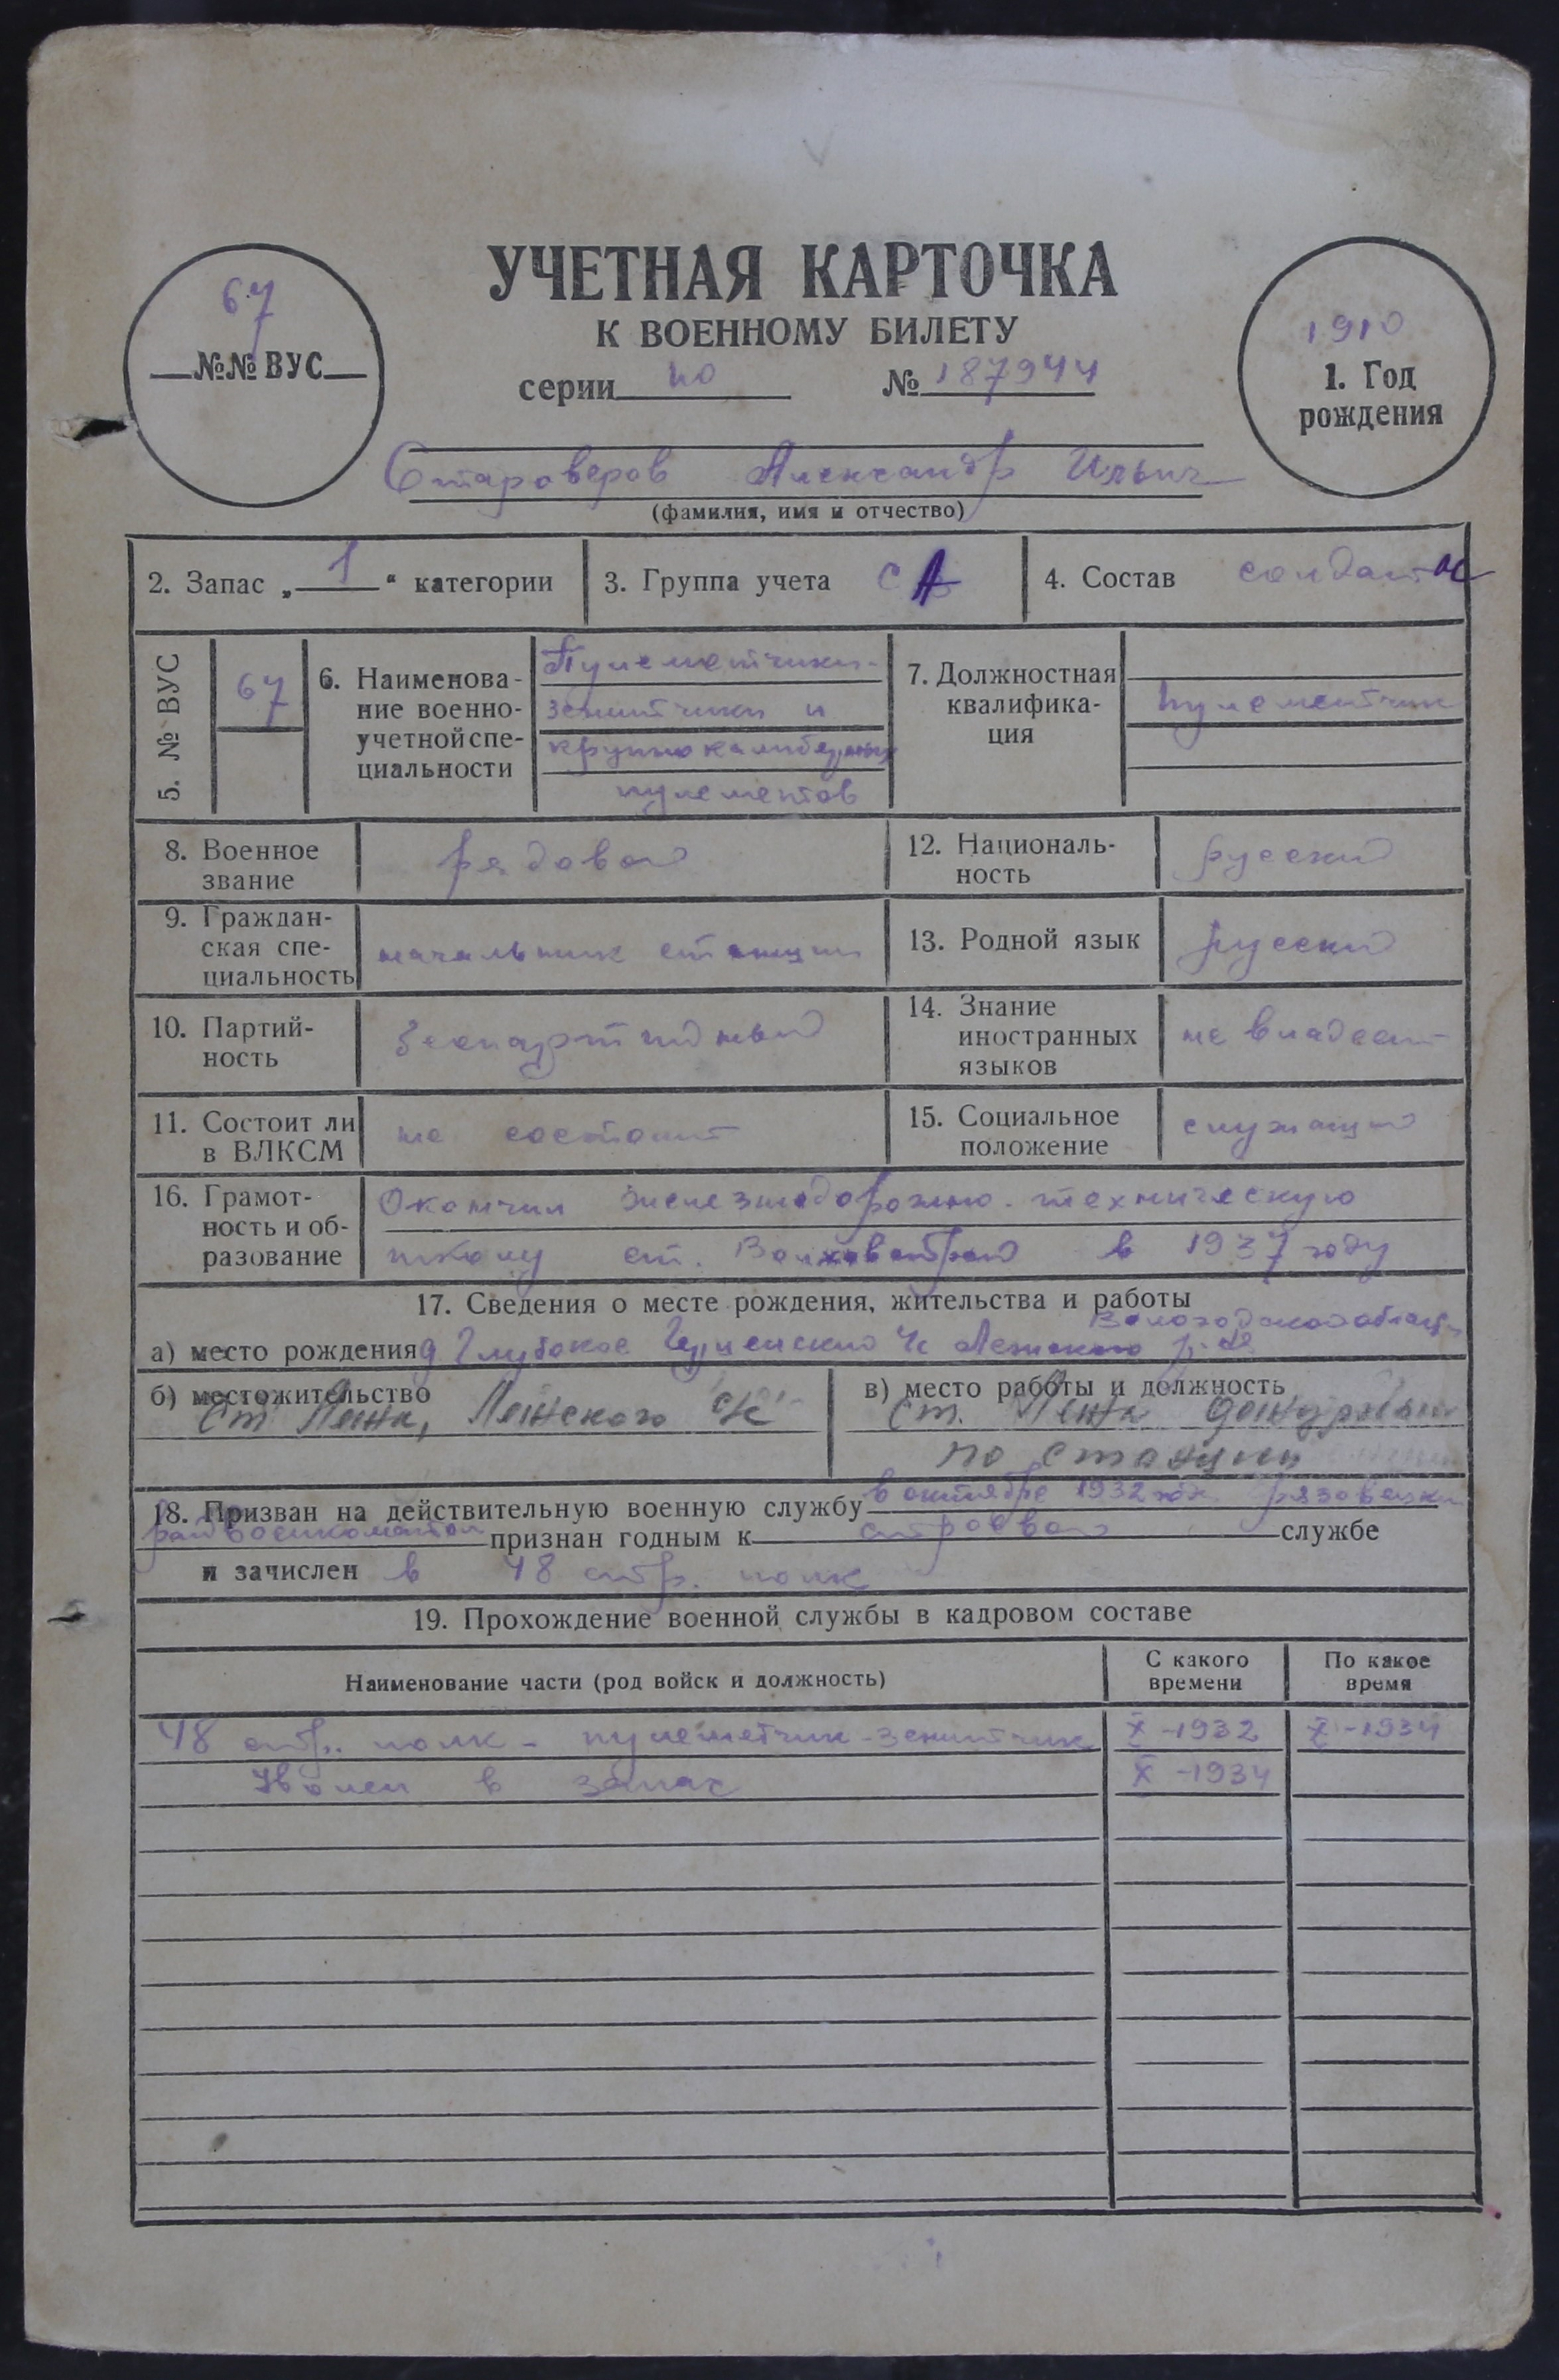 УЧЕТНАЯ КАРТОЧКА
К ВОЕННОМУ БИЛЕТУ
67
№№ ВУС
1910
1. Год
рождения
серии но № 187944
Староверов Александр Ильич
(фамилия, имя и отчество)
2. Запас „1“ категории
3. Группа учета СА
4. Состав солдаты
5. № ВУС
67
6. Наименова-
ние военно-
учетной спе-
циальности
Пулеметчики-
зенитчики и
крупнокалиберных
пулеметов
7. Должностная
квалифика-
ция
пулеметчик
8. Военное
звание
рядовой
12. Националь-
ность
русский
9. Граждан-
ская спе-
циальность
начальник станции
13. Родной язык
русский
10. Партий-
ность
беспартийный
14. Знание
иностранных
языков
не владеет
11. Состоит ли
в ВЛКСМ
не состоит
15. Социальное
положение
служащий
16. Грамот-
ность и об-
разование
Окончил железнодорожно-техническую
школу ст. Волховстрой в 1937 году
17. Сведения о месте рождения, жительства и работы
Вологодской области
а) место рождения д Глубокое с/с р-на
б) местожительство
ст Лежа, Лежского с/с
в) место работы и должность
ст. Лежа дежурный
по станции
18. Призван на действительную военную службу в октябре 1932 года Грязовецким
райвоенкоматом признан годным к строевой службе
и зачислен в 48 стр. полк
19. Прохождение военной службы в кадровом составе
Наименование части (род войск и должность)
С какого
времени
По какое
время
48 стр. полк - пулеметчик-зенитчик X-1932 X-1934
Уволен в запас X-1934